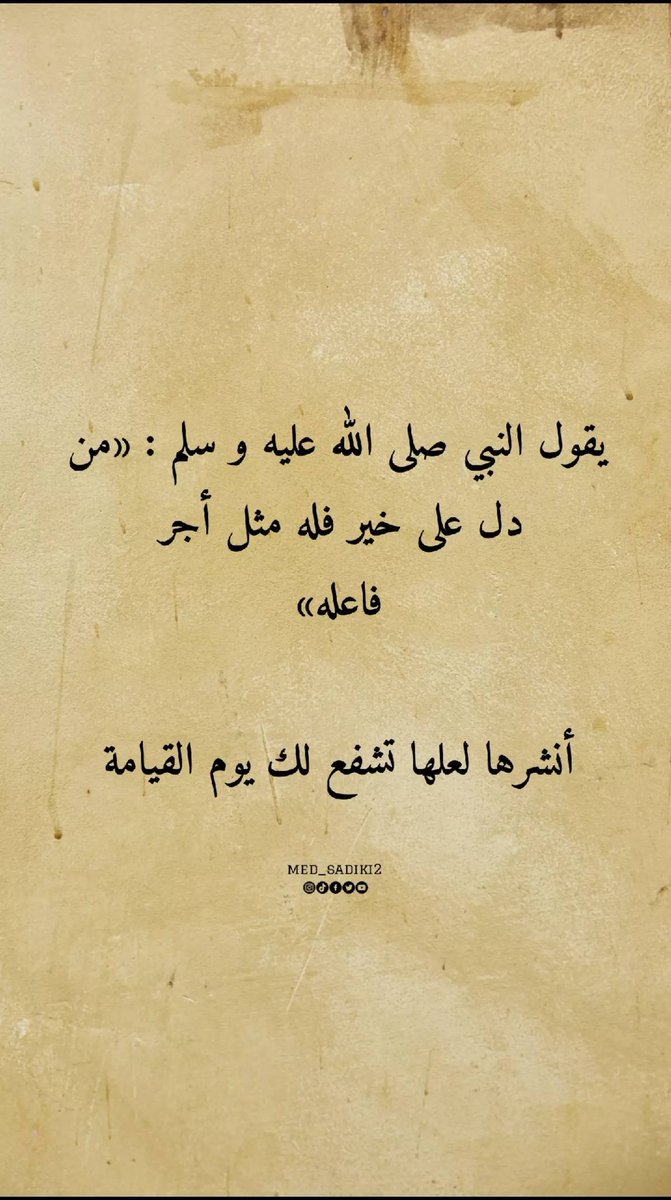 يقول النبي صلى الله عليه و سلم : «من
دل على خير فله مثل أجر
فاعله»
أنشرها لعلها تشفع لك يوم القيامة
MED_SADIKI2